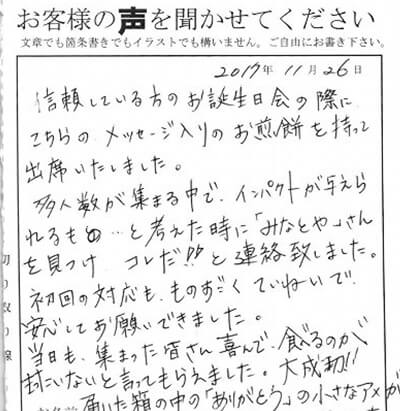 お客様の声を聞かせてください
文章でも箇条書きでもイラストでも構いません。ご自由にお書き下さい。
2017年11月26日
信頼している方のお誕生日会の際に
こちらのメッセージ入りのお煎餅を持って
出席いたしました。
多人数が集まる中で、インパクトが与えら
れるもの…と考えた時に「みなとや」さん
を見つけ コレだ!!と連絡致しました。
初回の対応も、ものすごくていねいで
安心してお願いできました。
当日も、集まった皆さん喜んで、食べるのが
もったいないと言ってもらえました。大成功!!
届いた箱の中の「ありがとう」の小さなアメが
切り取り線